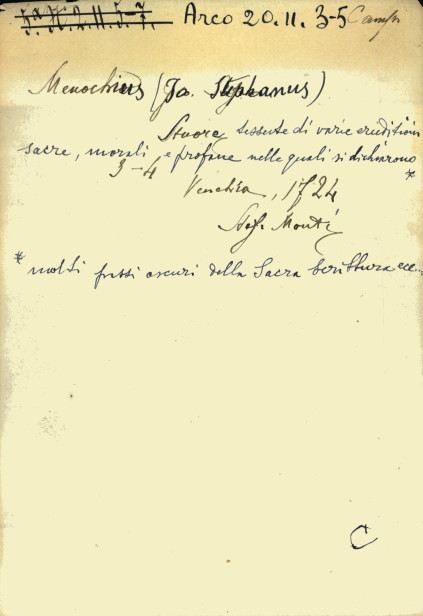 5ª H. 2. 11. 5-7. Arco 20. 11. 3-5
Menochius (Jo. Stephanus)
Stuore tessute di varie eruditioni
sacre, morali e profane nelle quali si dichiarono *
3-4
Venezia, 1724
Stef. Monti
* molti passi oscuri della Sacra Scrittura ecc...
C